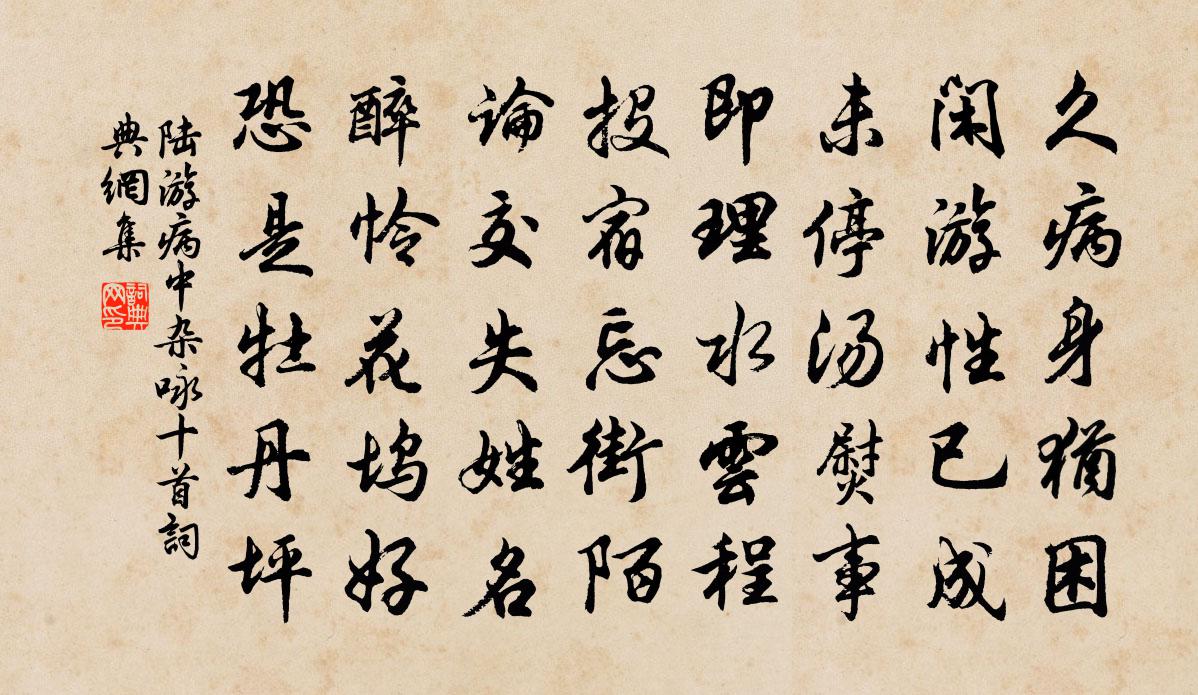 久病身猶困
閑游性已成
未停汤熨事
即理水雲程
投宿忘街陌
論交失姓名
醉怜花坞好
恐是牡丹坪
陆游病中杂咏十首詞
典網集
詞典
网印